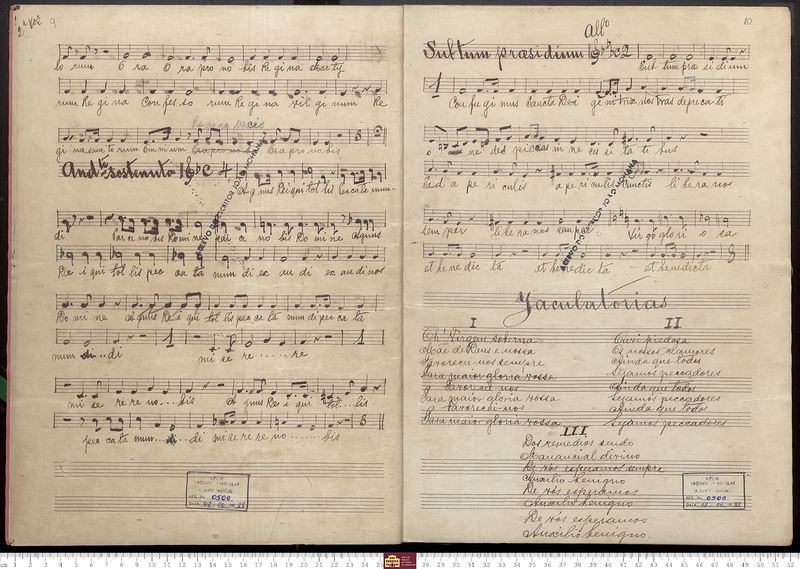 2ª Voz 9
lo rum O ra O ra pro no bis Re gi na Sacty
rum Re gi na Con fes so rum Re gi na vir gi num Re
Regina pacis
gi na sanc to rum Om ni um Ora pro no bis Ora pro no bis
Andte sostenuto C 4
A gnus Dei qui tol lis pec cata mun
di Par ce no bis Do mi ne par ce no bis Do mi ne Agnus
De i qui tol lis pec ca ta mun di ex au di ex au di nos
Do mi ne Agnus De i qui tol lis pec ca ta mun di pec ca ta
mun di 1 mi se re re
mi se re re no bis A gnus De i qui tol lis
pec cata mun di mi se re re no bis
ACERVO DO CANTOR JOÃO MOHANA
APEM
ARQUIVO PARTICULAR
ACERVO MUSICAL
REG. No. 0500
DATA 08.06.88
10
Allo
Subtum præsidium C 2
Sub tum præ si dium
1 Con fu gi mus Sancta Dei ge ni trix nos tras depreca ti
o nes des pi cias in ne ces si ta ti bus
sed a pe ri culis a pe ri culis cunctis li be ra nos
sem per li be ra nos sem per Vir go glo ri o sa
et be ne dic ta et be ne dic ta et benedicta
ACERVO DO CANTOR JOÃO MOHANA
Jaculatorias
I
Oh! Virgem soberana
Mãe de Deus e nossa
Favorecei-nos sempre
Para maior gloria vossa
Favorecei-nos
Para maior gloria vossa
Favorecei-nos
Para maior gloria vossa
II
Ouvi piedosa
Os nossos clamores
Ainda que todos
Sejamos peccadores
Ainda que todos
Sejamos peccadores
Ainda que todos
Sejamos peccadores
III
Dos remedios sendo
Manancial divino
De vós esperamos sempre
Auxilio benigno
De vós esperamos
Auxilio benigno
De vós esperamos
Auxilio benigno.
APEM
ARQUIVO PARTICULAR
ACERVO MUSICAL
REG. No. 0500
DATA 08.06.88